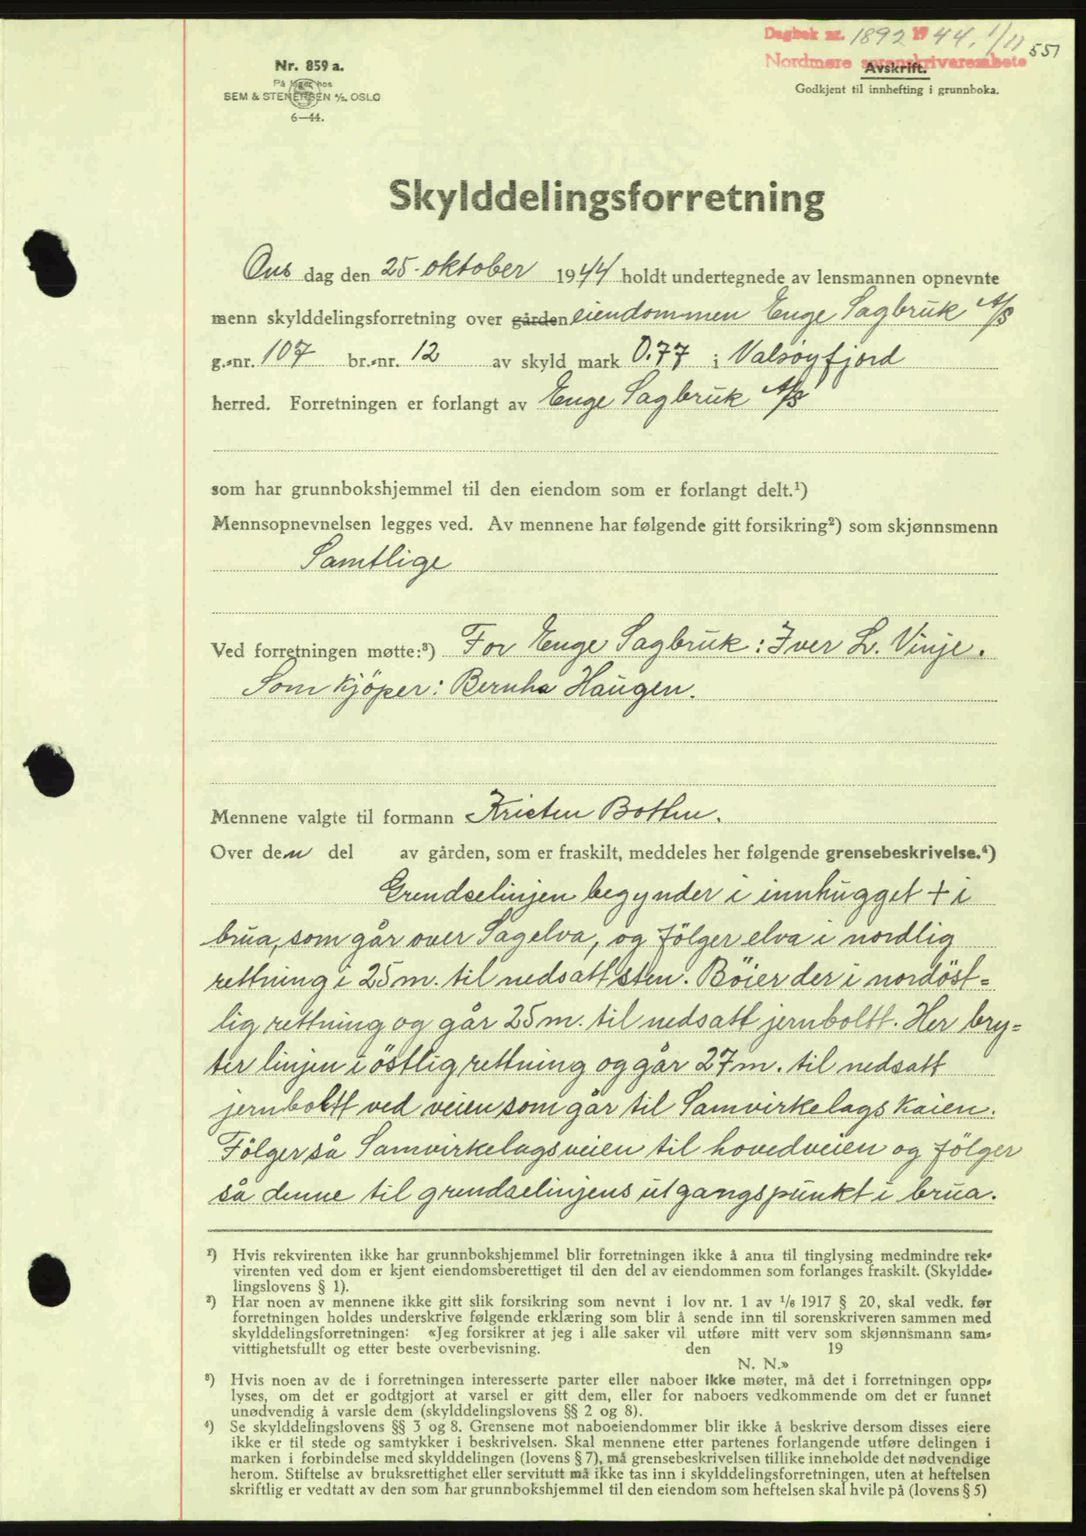 Dagbok nr. 1892 1944. 1/11 551
Nordmøre sorenskriverembete
Nr. 859 a.
På lager hos
SEM & STENERSEN A/S. OSLO
6—44.
Avskrift.
Godkjent til innhefting i grunnboka.
Skylddelingsforretning
Ons dag den 25. oktober 1944 holdt undertegnede av lensmannen opnevnte
menn skylddelingsforretning over gården eiendommen Enge Sagbruk A/S
g.-nr. 107 br.-nr. 12 av skyld mark 0.77 i Valsøyfjord
herred. Forretningen er forlangt av Enge Sagbruk A/S
som har grunnbokshjemmel til den eiendom som er forlangt delt.¹)
Mennsopnevnelsen legges ved. Av mennene har følgende gitt forsikring²) som skjønnsmenn
Samtlige
Ved forretningen møtte:³) For Enge Sagbruk: Iver L. Vinje.
Som kjöper: Bernha Haugen.
Mennene valgte til formann Kristen Botten.
Over den del av gården, som er fraskilt, meddeles her følgende grensebeskrivelse.⁴)
Grendselinjen begynder i innhugget + i
brua, som går over Sagelva, og fölger elva i nordlig
rettning i 25 m. til nedsatt sten. Böier der i nordöst-
lig rettning og går 25 m. til nedsatt jernboltt. Her bry-
ter linjen i östlig rettning og går 27 m. til nedsatt
jernboltt ved veien som går til Samvirkelagskaien.
Fölger så Samvirkelagsveien til hovedveien og fölger
så denne til grendselinjens utgangspunkt i brua.
¹) Hvis rekvirenten ikke har grunnbokshjemmel blir forretningen ikke å anta til tinglysing medmindre rek-
virenten ved dom er kjent eiendomsberettiget til den del av eiendommen som forlanges fraskilt. (Skyldde-
lingslovens § 1).
²) Har noen av mennene ikke gitt slik forsikring som nevnt i lov nr. 1 av 1/6 1917 § 20, skal vedk. før
forretningen holdes underskrive følgende erklæring som blir å sende inn til sorenskriveren sammen med
skylddelingsforretningen: «Jeg forsikrer at jeg i alle saker vil utføre mitt verv som skjønnsmann sam-
vittighetsfullt og etter beste overbevisning. den 19
N. N.»
³) Hvis noen av de i forretningen interesserte parter eller naboer ikke møter, må det i forretningen opp-
lyses, om det er godtgjort at varsel er gitt dem, eller for naboers vedkommende om det er funnet
unødvendig å varsle dem (skylddelingslovens §§ 2 og 8).
⁴) Se skylddelingslovens §§ 3 og 8. Grensene mot naboeiendommer blir ikke å beskrive dersom disses eiere
ikke er til stede og samtykker i beskrivelsen. Skal mennene etter partenes forlangende utføre delingen i
marken i forbindelse med skylddelingen (lovens § 7), må grensebeskrivelsen tillike inneholde det nødvendige
herom. Stiftelse av bruksrettighet eller servitutt må ikke tas inn i skylddelingsforretningen, uten at heftelsen
skriftlig er vedtatt av den som har grunnbokshjemmel til den eiendom som heftelsen skal hvile på (lovens § 5)